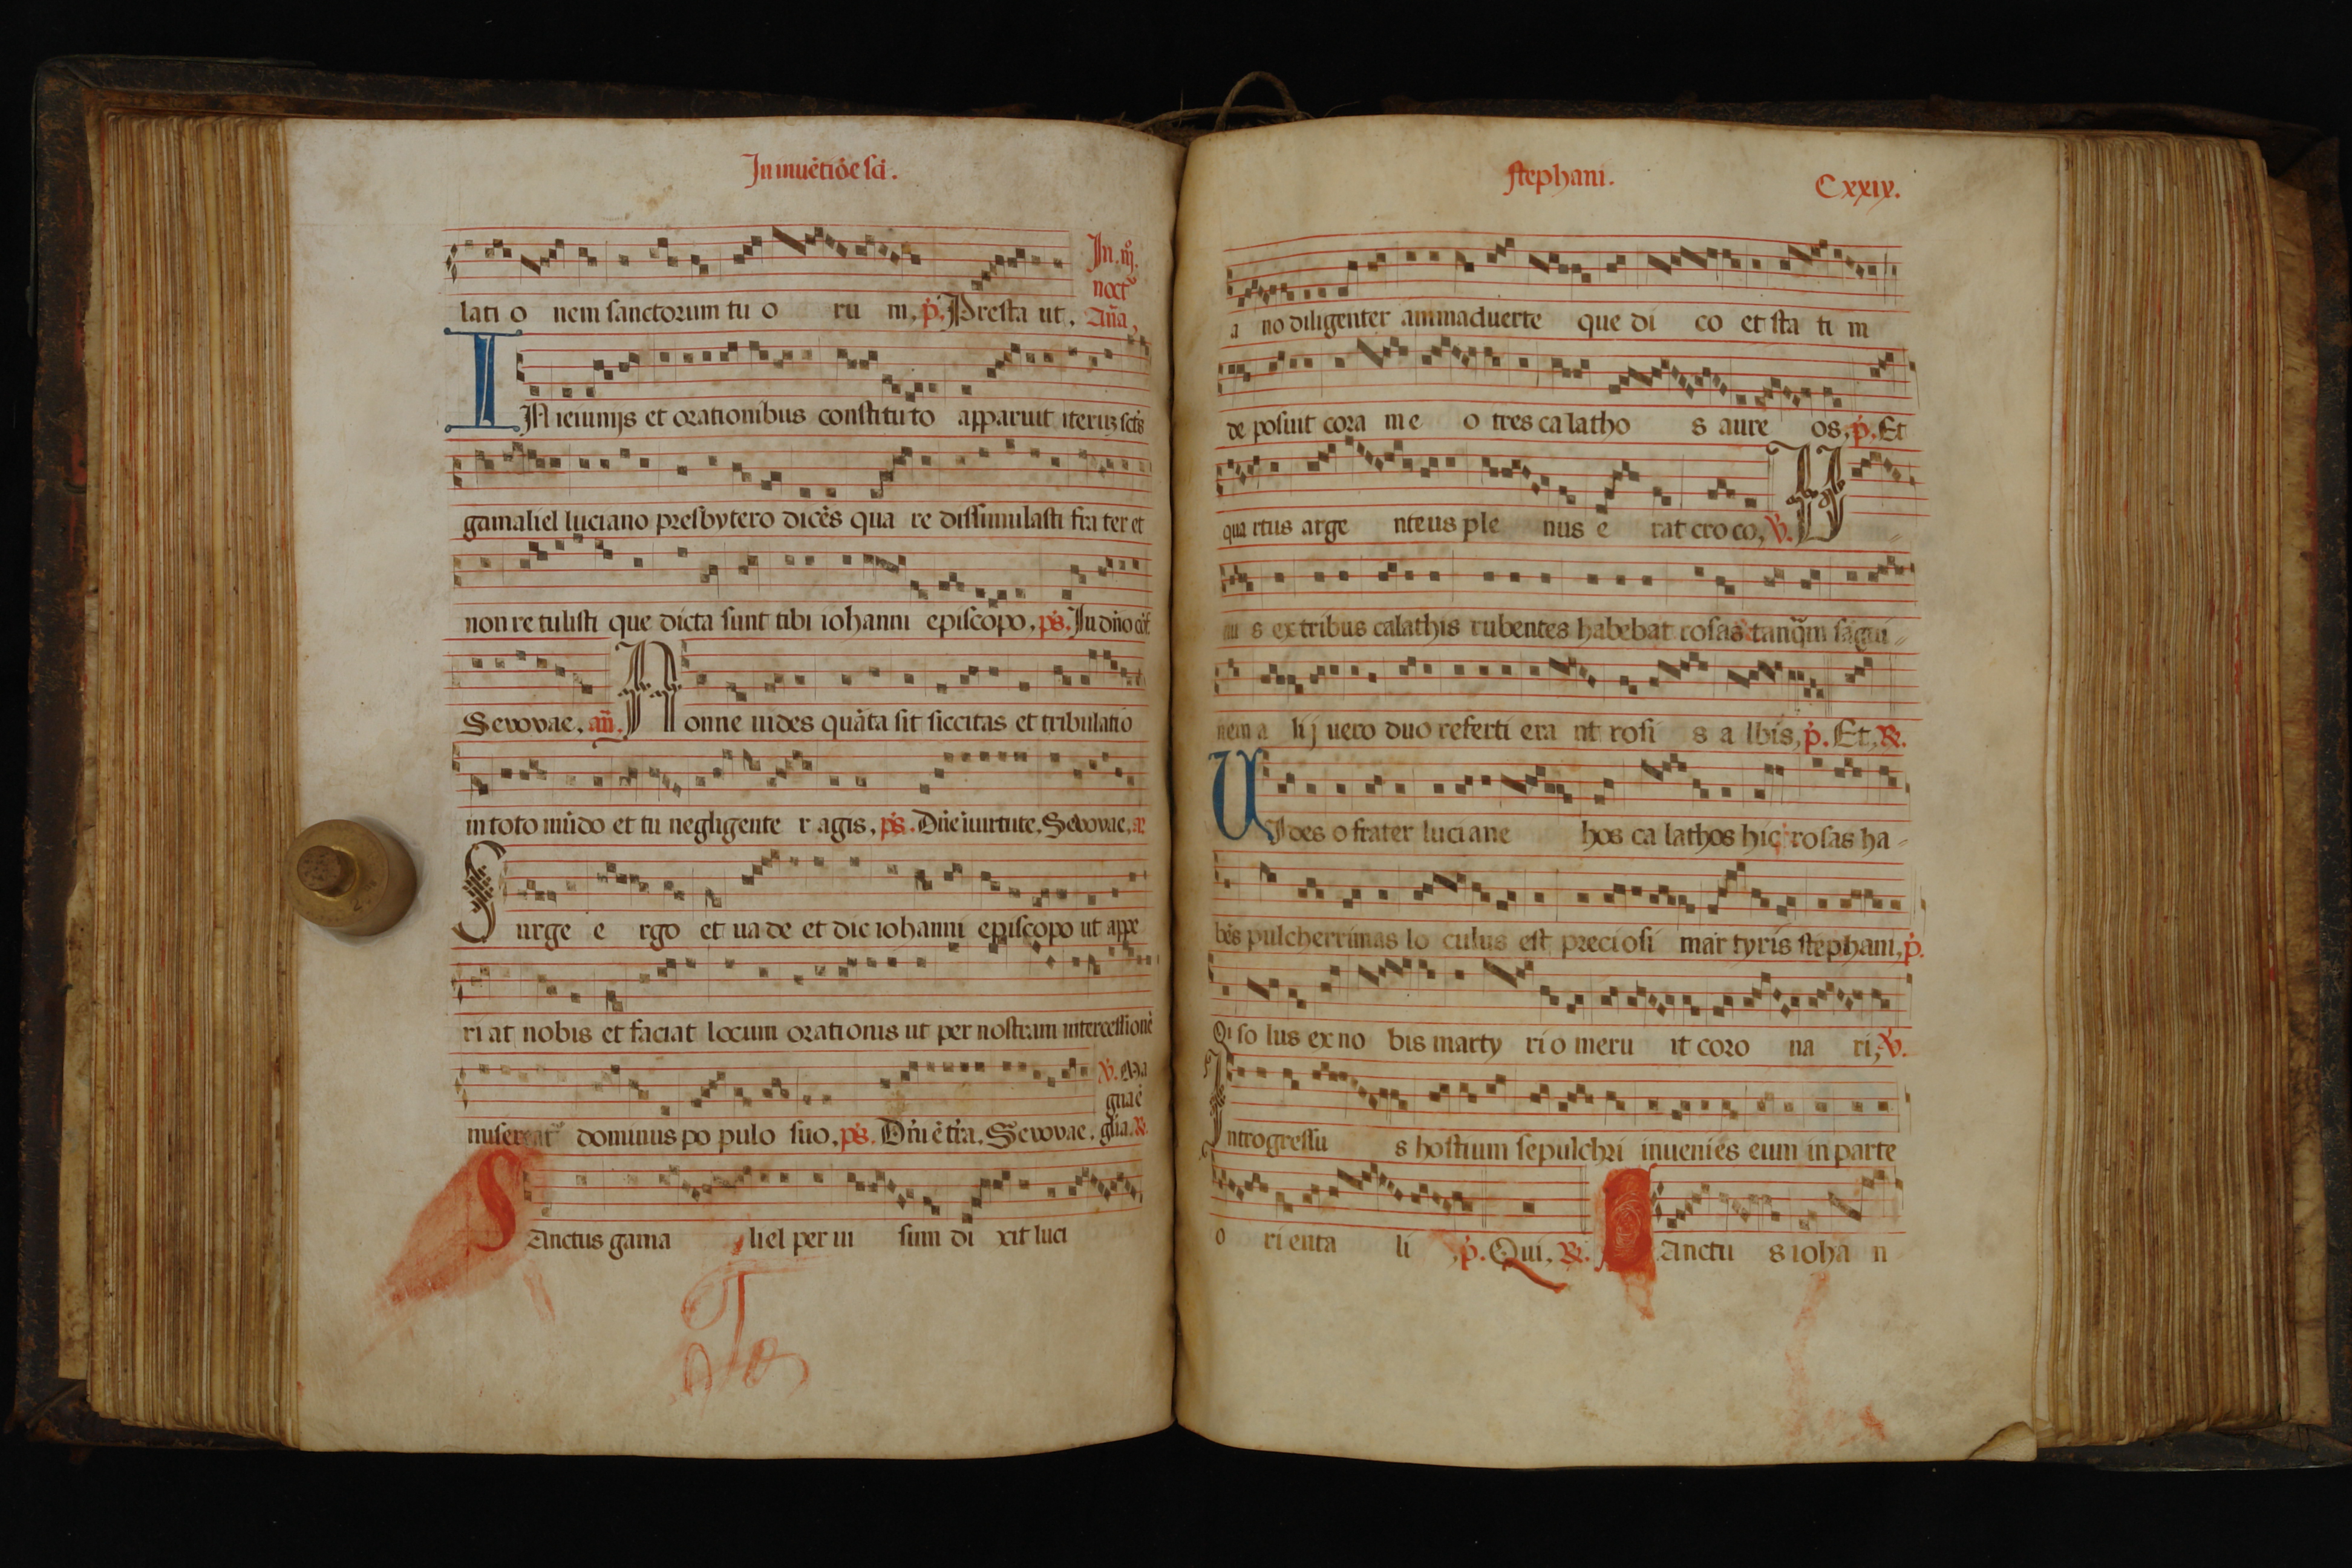 In inuẽtiõe sci̅.
lati o nem sanctorum tu o ru m, p̉. Presta ut.
In .iij.
noct᷒
añа,
IN ieiunijs et orationibus constituto apparuit iteruꝫ sctũs
gamaliel luciano presbytero dicẽs qua re dissimulasti fra ter et
non re tulisti que dicta sunt tibi iohanni episcopo, ps̉. In dño cõf
Seuouae. añ. Nonne uides quãta sit siccitas et tribulatio
in toto mũdo et tu negligente r agis, ps̉. Dñe ĩ uirtute, Seuouae, añ
Surge e rgo et ua de et dic iohanni episcopo ut appe
ri at nobis et faciat locum orationis ut per nostram intercessionẽ
misereat᷒ dominus po pulo suo, ps̉. Dñi ẽ tr̃a. Seuouae.
℣. Ma
gna ẽ
gl̃ia. ℟.
SAnctus gama liel per ui sum di xit luci
To
stephani.
Cxxix.
a no diligenter animaduerte que di co et sta ti m
de posuit cora me o tres ca latho s aure os, p̉. Et
qua rtus arge nteus ple nus e rat cro co, ℣. U
nu s ex tribus calathis rubentes habebat rosas tanq̃m sãgui
nem a lij uero duo referti era nt rosi s a lbis, p̉. Et, ℟.
UIdes o frater luciane hos ca lathos hic rosas ha-
bẽs pulcherrimas lo culus est preciosi mar tyris stephani, p̉.
Qi so lus ex no bis marty ri o meru it coro na ri, ℣.
Introgressu s hostium sepulchri inuenies eum in parte
o rienta li , p̉. Qui, ℟. SAnctu s ioha n